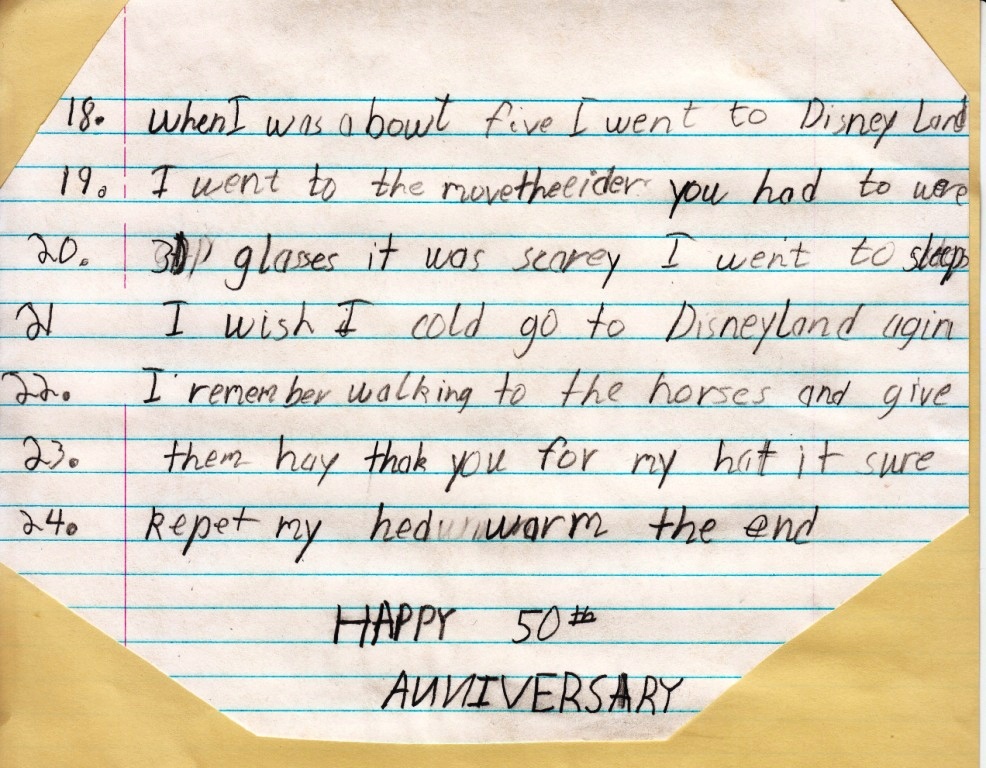 18. when I was abowt five I went to Disney Land
19. I went to the movetheeider you had to were
20. 3D glasses it was scarey I went to sleep
21 I wish I cold go to Disneyland agin
22. I remember walking to the horses and give
23. them hay thak you for my hat it sure
24. kepet my hed warm the end
HAPPY 50th
ANNIVERSARY